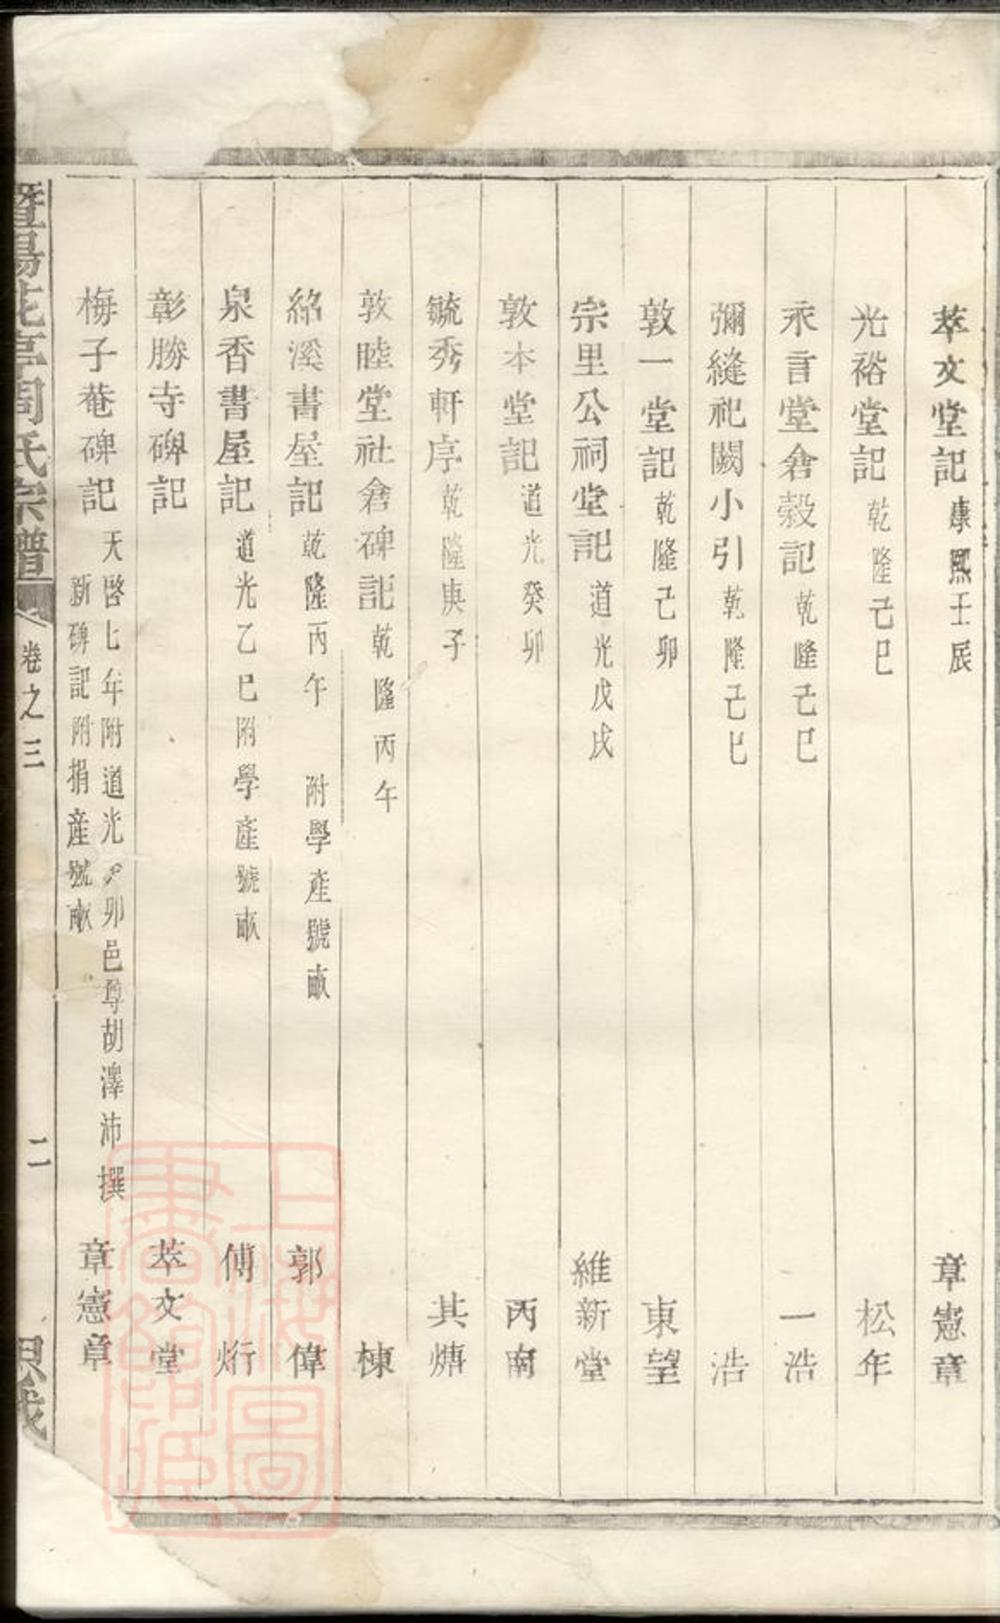 萃文堂記 康熙壬辰 章憲章
光裕堂記 乾隆己巳 松年
永言堂倉穀記 乾隆己巳 一浩
彌縫祀闕小引 乾隆己巳 浩
敦一堂記 乾隆己卯 東望
宗里公祠堂記 道光戊戌 維新堂
敦本堂記 道光癸卯 丙南
毓秀軒序 乾隆庚子 其㷬
敦睦堂社倉碑記 乾隆丙午 棟
紹溪書屋記 乾隆丙午 附學產號畝 郭偉
泉香書屋記 道光乙巳附學產號畝 傅烆
彰勝寺碑記 萃文堂
梅子菴碑記 天啓七年附道光 卯邑尊胡澤沛撰
新碑記附捐產號畝 章憲章
暨陽花亭周氏宗譜 卷之三 二 思
上海圖書館藏